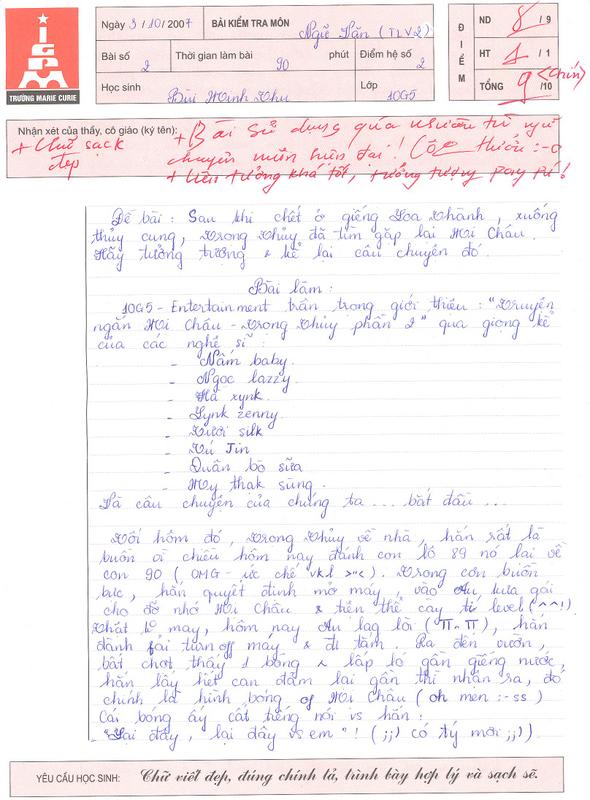 TRƯỜNG MARIE CURIE
Ngày 3 / 10 / 2007 BÀI KIỂM TRA MÔN Ngữ Văn (TLV2)
Bài số 2 Thời gian làm bài 90 phút Điểm hệ số 2
Học sinh Bùi Minh Thu Lớp 10G5
ĐIỂM
ND 8 / 9
HT 1 / 1
TỔNG 9 /10 (chín)
Nhận xét của thầy, cô giáo (ký tên):
+ Chữ sạch đẹp
+ Bài sử dụng quá nhiều từ ngữ
chuyên môn hiện đại!
+ Liên tưởng khá tốt, tưởng tượng phong phú!
Đề bài : Sau khi chết ở giếng Loa Thành, xuống
thủy cung, Trọng Thủy đã tìm gặp lại Mị Châu.
Hãy tưởng tượng & kể lại câu chuyện đó.
Bài làm :
10G5 - Entertainment trân trọng giới thiệu : "Truyện
ngắn Mị Châu - Trọng Thủy phần 2" qua giọng kể
của các nghệ sĩ :
- Nấm baby.
- Ngọc lazzy.
- Hà xynk.
- Lynk zenny.
- Tười silk
- Tú Jin
- Quân bò sữa
- My thak sùng.
Và câu chuyện của chúng ta ... bắt đầu ...
Tối hôm đó, Trọng Thủy về nhà, hắn rất là
buồn vì chiều hôm nay đánh con lô 89 nó lại về
con 90 ( OMG - ức chế vkl >"<). Trong cơn buồn
bực, hắn quyết định mở máy, vào Au, cưa gái
cho đỡ nhớ Mị Châu & tiện thể cày tí level (^^!)
Nhát 10 may, hôm nay Au lag lòi (π_π), hắn
đành fải turn off máy & đi tắm. Ra đến vườn,
bất chợt thấy 1 bóng ^ lấp ló gần giếng nước,
hắn lấy hết can đảm lại gần thì nhận ra, đó
chính là hình bóng of Mị Châu ( oh men :-ss )
Cái bóng ấy cất tiếng nói vs hắn :
"Lại đây, lại đây vs em" ! ( ;;) có tý mời ;;) ).
YÊU CẦU HỌC SINH: Chữ viết đẹp, đúng chính tả, trình bày hợp lý và sạch sẽ.